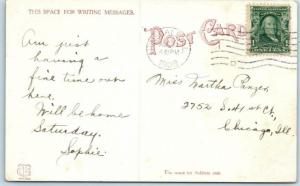 THIS SPACE FOR WRITING MESSAGES.
POST CARD
Am just
having a
fine time out
here.
Will be home
Saturday.
Sophie.
Miss Martha Panzer,
2752 S. 41 st Ct.,
Chicago, Ill.